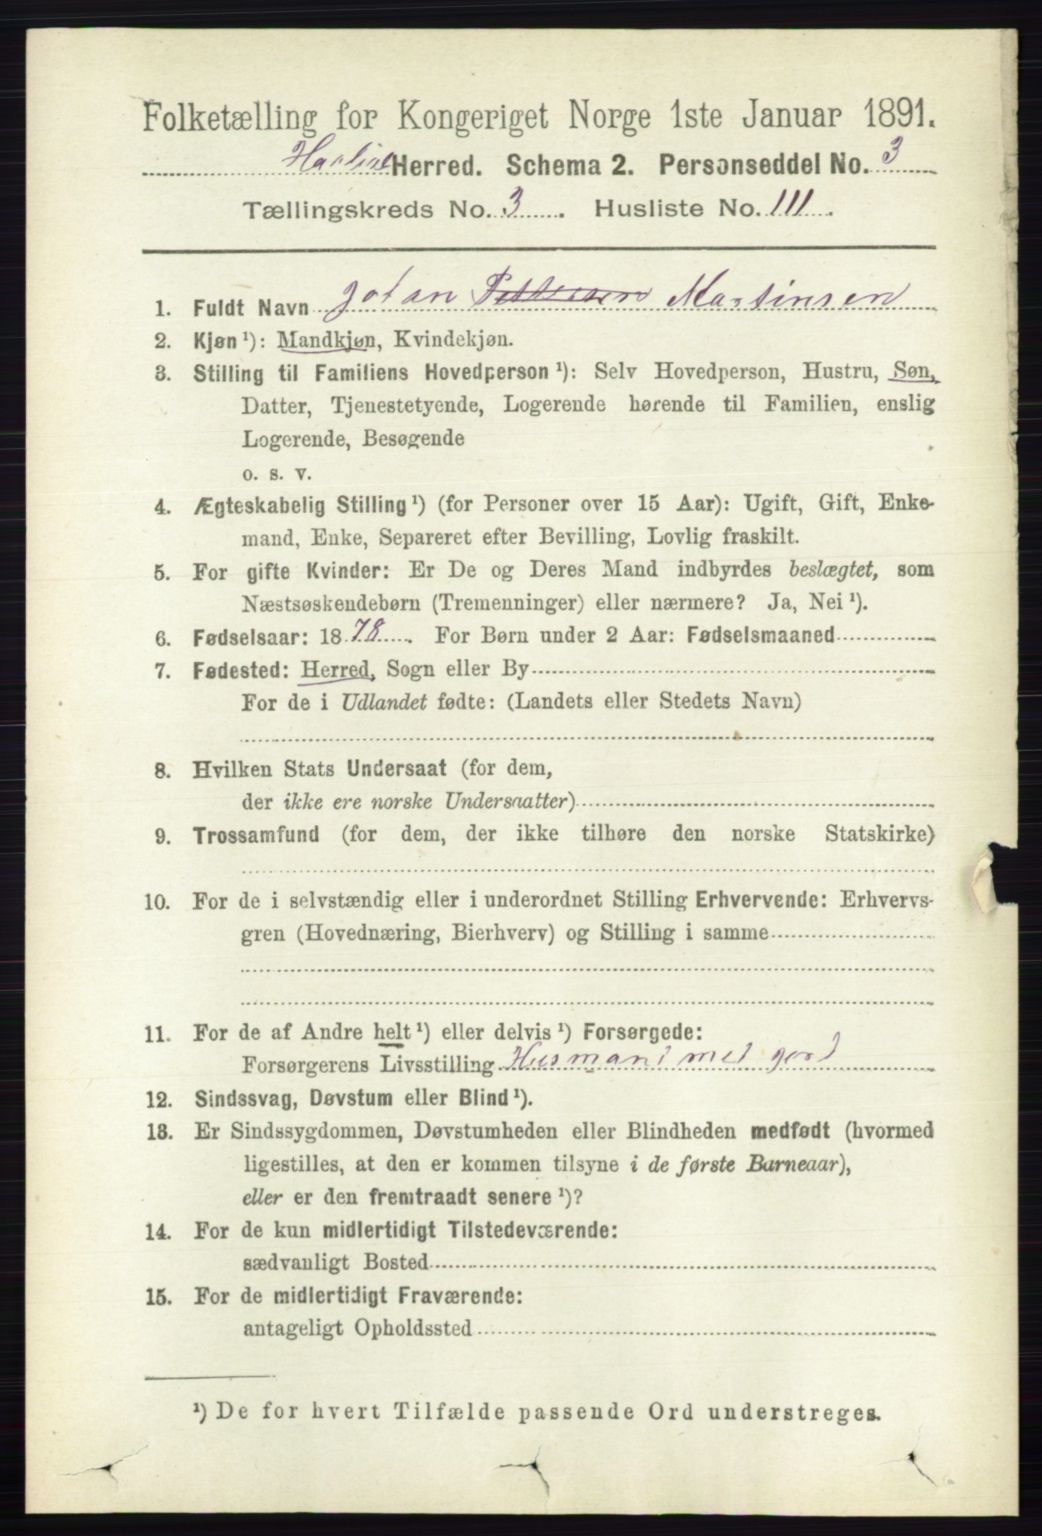 Folketælling for Kongeriget Norge 1ste Januar 1891.
Herred. Schema 2. Personseddel No. 3
Tællingskreds No. 3. Husliste No. 111.
1. Fuldt Navn Johan Martinsen
2. Kjøn ¹): Mandkjøn, Kvindekjøn.
3. Stilling til Familiens Hovedperson ¹): Selv Hovedperson, Hustru, Søn,
Datter, Tjenestetyende, Logerende hørende til Familien, enslig
Logerende, Besøgende
o. s. v.
4. Ægteskabelig Stilling ¹) (for Personer over 15 Aar): Ugift, Gift, Enke-
mand, Enke, Separeret efter Bevilling, Lovlig fraskilt.
5. For gifte Kvinder: Er De og Deres Mand indbyrdes beslægtet, som
Næstsøskendebørn (Tremenninger) eller nærmere? Ja, Nei ¹).
6. Fødselsaar: 1878. For Børn under 2 Aar: Fødselsmaaned
7. Fødested: Herred, Sogn eller By
For de i Udlandet fødte: (Landets eller Stedets Navn)
8. Hvilken Stats Undersaat (for dem,
der ikke ere norske Undersaatter)
9. Trossamfund (for dem, der ikke tilhøre den norske Statskirke)
10. For de i selvstændig eller i underordnet Stilling Erhvervende: Erhvervs-
gren (Hovednæring, Bierhverv) og Stilling i samme
11. For de af Andre helt ¹) eller delvis ¹) Forsørgede:
Forsørgerens Livsstilling Husmand med jord
12. Sindssvag, Døvstum eller Blind ¹).
13. Er Sindssygdommen, Døvstumheden eller Blindheden medfødt (hvormed
ligestilles, at den er kommen tilsyne i de første Barneaar),
eller er den fremtraadt senere ¹)?
14. For de kun midlertidigt Tilstedeværende:
sædvanligt Bosted
15. For de midlertidigt Fraværende:
antageligt Opholdssted
¹) De for hvert Tilfælde passende Ord understreges.